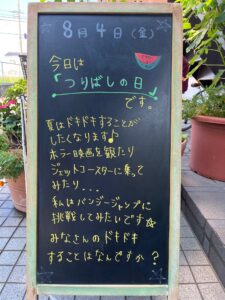 8月4日(金)
今日は
「つりばしの日」
です。
夏はドキドキすることが
したくなります♪
ホラー映画を観たり
ジェットコースターに乗って
みたり...
私はバンジージャンプに
挑戦してみたいです☆
みなさんのドキドキ
することはなんですか?